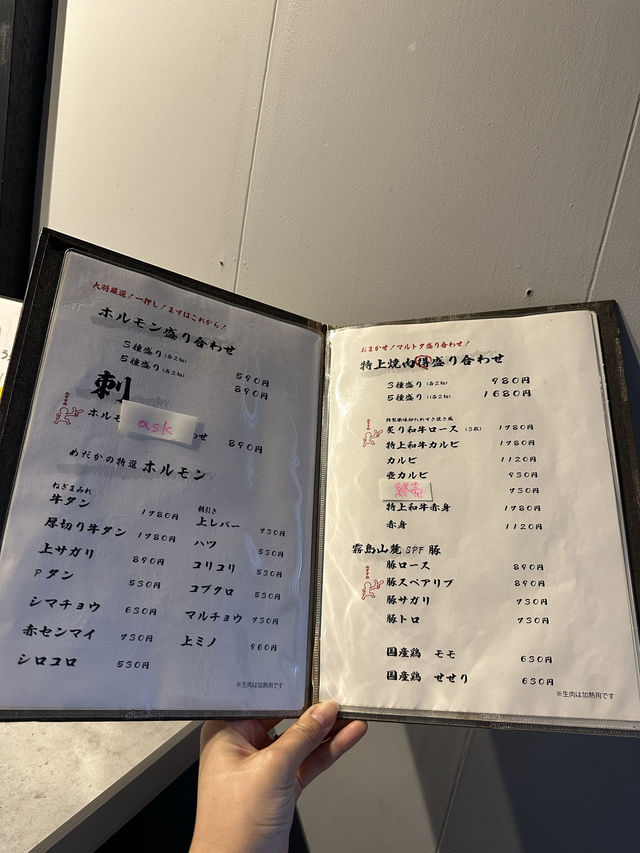 大将厳選！一押し！まずはこれから！
ホルモン盛り合わせ
3種盛り(各2切) 590円
5種盛り(各2切) 890円
刺
ask
890円
めだかの特選 ホルモン
ねぎまみれ
牛タン 1780円
厚切り牛タン 1780円
上サガリ 890円
タン 530円
シマチョウ 630円
赤センマイ 730円
シロコロ 530円
上レバー 730円
ハツ 530円
コリコリ 530円
コブクロ 530円
マルチョウ 730円
上ミノ 960円
※生肉は加熱用です
おまかせ！マルトク盛り合わせ！
特上焼肉得盛り合わせ
3種盛り(各2切) 980円
5種盛り(各2切) 1680円
炙り和牛ロース 1780円
特上和牛カルビ 1780円
カルビ 1120円
壺カルビ 930円
終売 730円
特上和牛赤身 1780円
赤身 1120円
霧島山麓 SPF 豚
豚ロース 890円
豚スペアリブ 890円
豚サガリ 730円
豚トロ 730円
国産鶏 モモ 630円
国産鶏 せせり 630円
※生肉は加熱用です